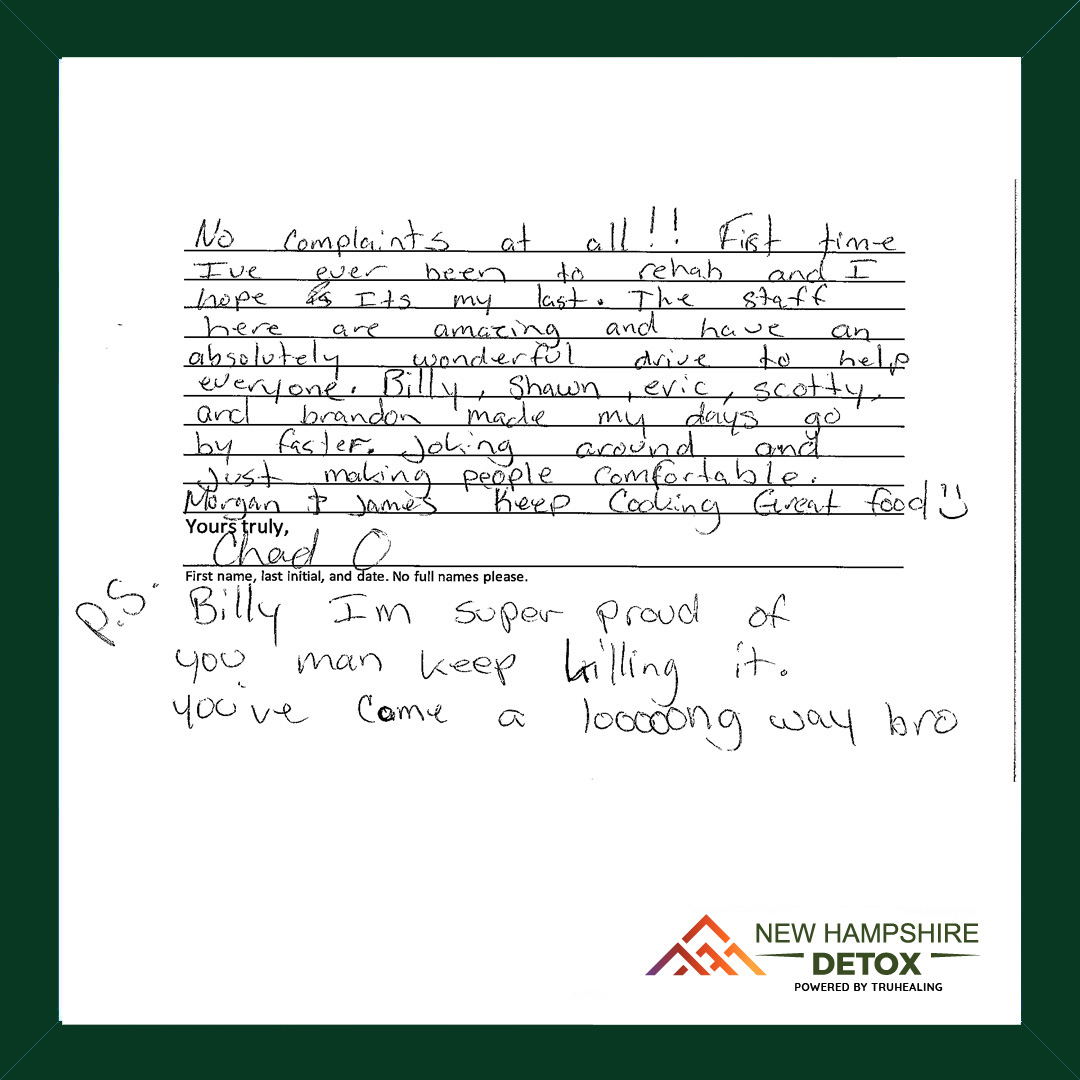 No complaints at all!! First time
I've ever been to rehab and I
hope Its my last. The staff
here are amazing and have an
absolutely wonderful drive to help
everyone. Billy, Shawn, eric, scotty,
and brandon made my days go
by faster. Joking around and
Just making people comfortable.
Morgan & James Keep Cooking Great food :)
Yours truly,
Chad O
First name, last initial, and date. No full names please.
P.S. Billy Im super proud of
you man keep killing it.
you've come a looooong way bro
NEW HAMPSHIRE
DETOX
POWERED BY TRUHEALING